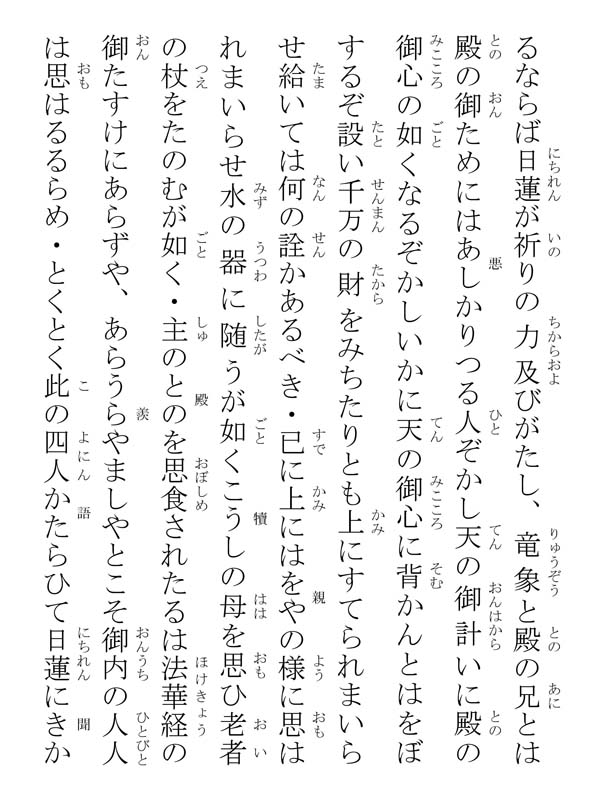 るならば日蓮が祈りの力及びがたし、竜象と殿の兄とは
殿の御ためにはあしかりつる人ぞかし天の御計いに殿の
御心の如くなるぞかしいかに天の御心に背かんとはをぼ
するぞ設い千万の財をみちたりとも上にすてられまいら
せ給いては何の詮かあるべき・已に上にはをやの様に思は
れまいらせ水の器に随うが如くこうしの母を思ひ老者
の杖をたのむが如く・主のとのを思食されたるは法華経の
御たすけにあらずや、あらうらやましやとこそ御内の人人
は思はるるらめ・とくとく此の四人かたらひて日蓮にきか